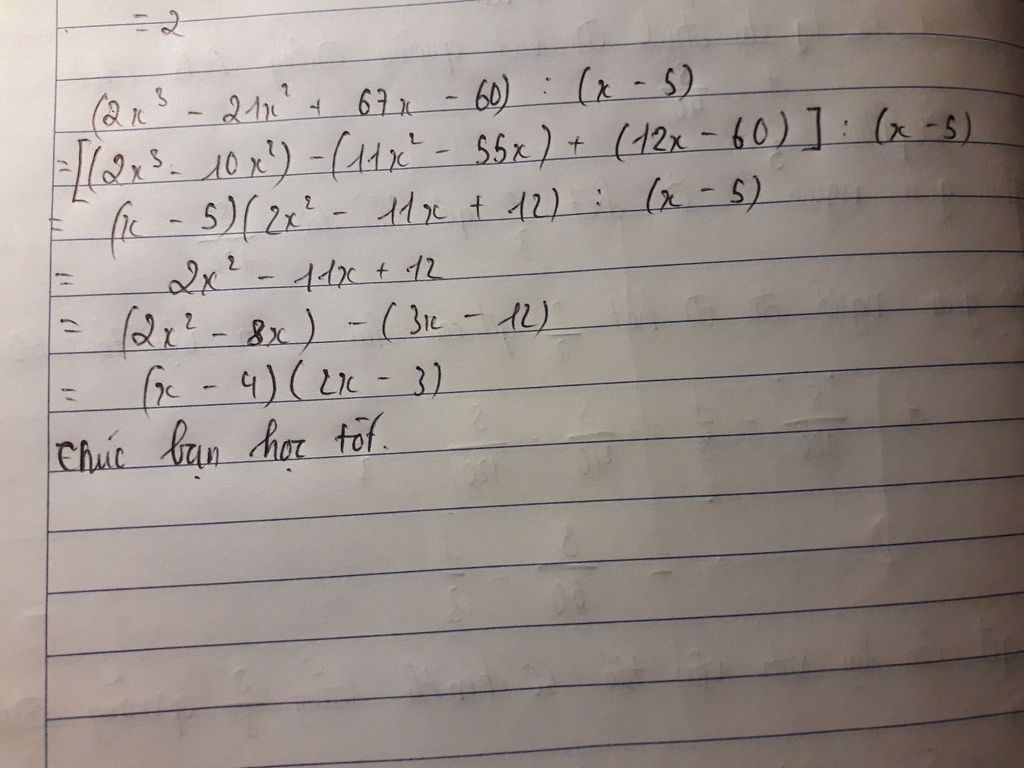 = 2
(2x³ - 21x² + 67x - 60) : (x - 5)
=[(2x³ - 10x²) - (11x² - 55x) + (12x - 60)] : (x - 5)
= (x - 5)(2x² - 11x + 12) : (x - 5)
= 2x² - 11x + 12
= (2x² - 8x) - (3x - 12)
= (x - 4)(2x - 3)
Chúc bạn học tốt.